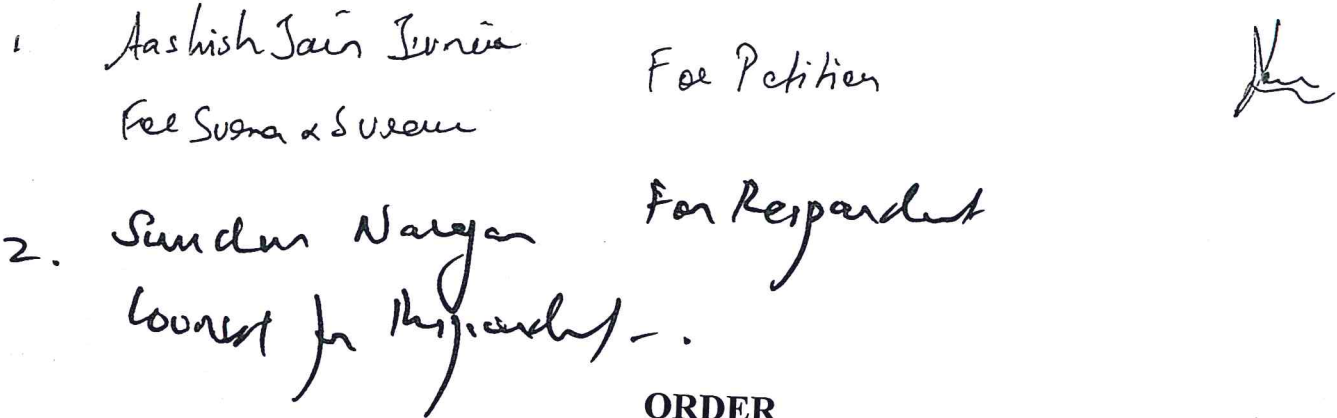 1 Aashish Jain For Petition
For & 
2. Sundar Narayan For Respondent
Counsel for Respondent -.
ORDER